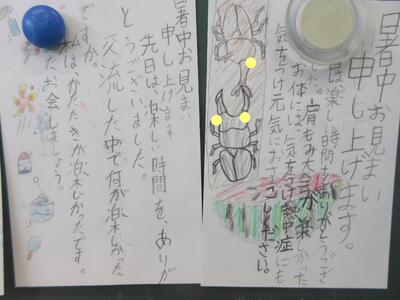 暑中お見まい
申し上げます。
先日は楽しい時間をありがとうござい
ました。肩もみ大会が楽しかった
お体には、気をつけ熱中症にも
気をつけ元気におすごしください。
暑中お見まい
申し上げます
先日は、楽しい時間を、ありが
とうございました。
交流した中で何が楽しかった
ですか。
私は、かたたたきが楽しかったです。
またお会いしましょう。